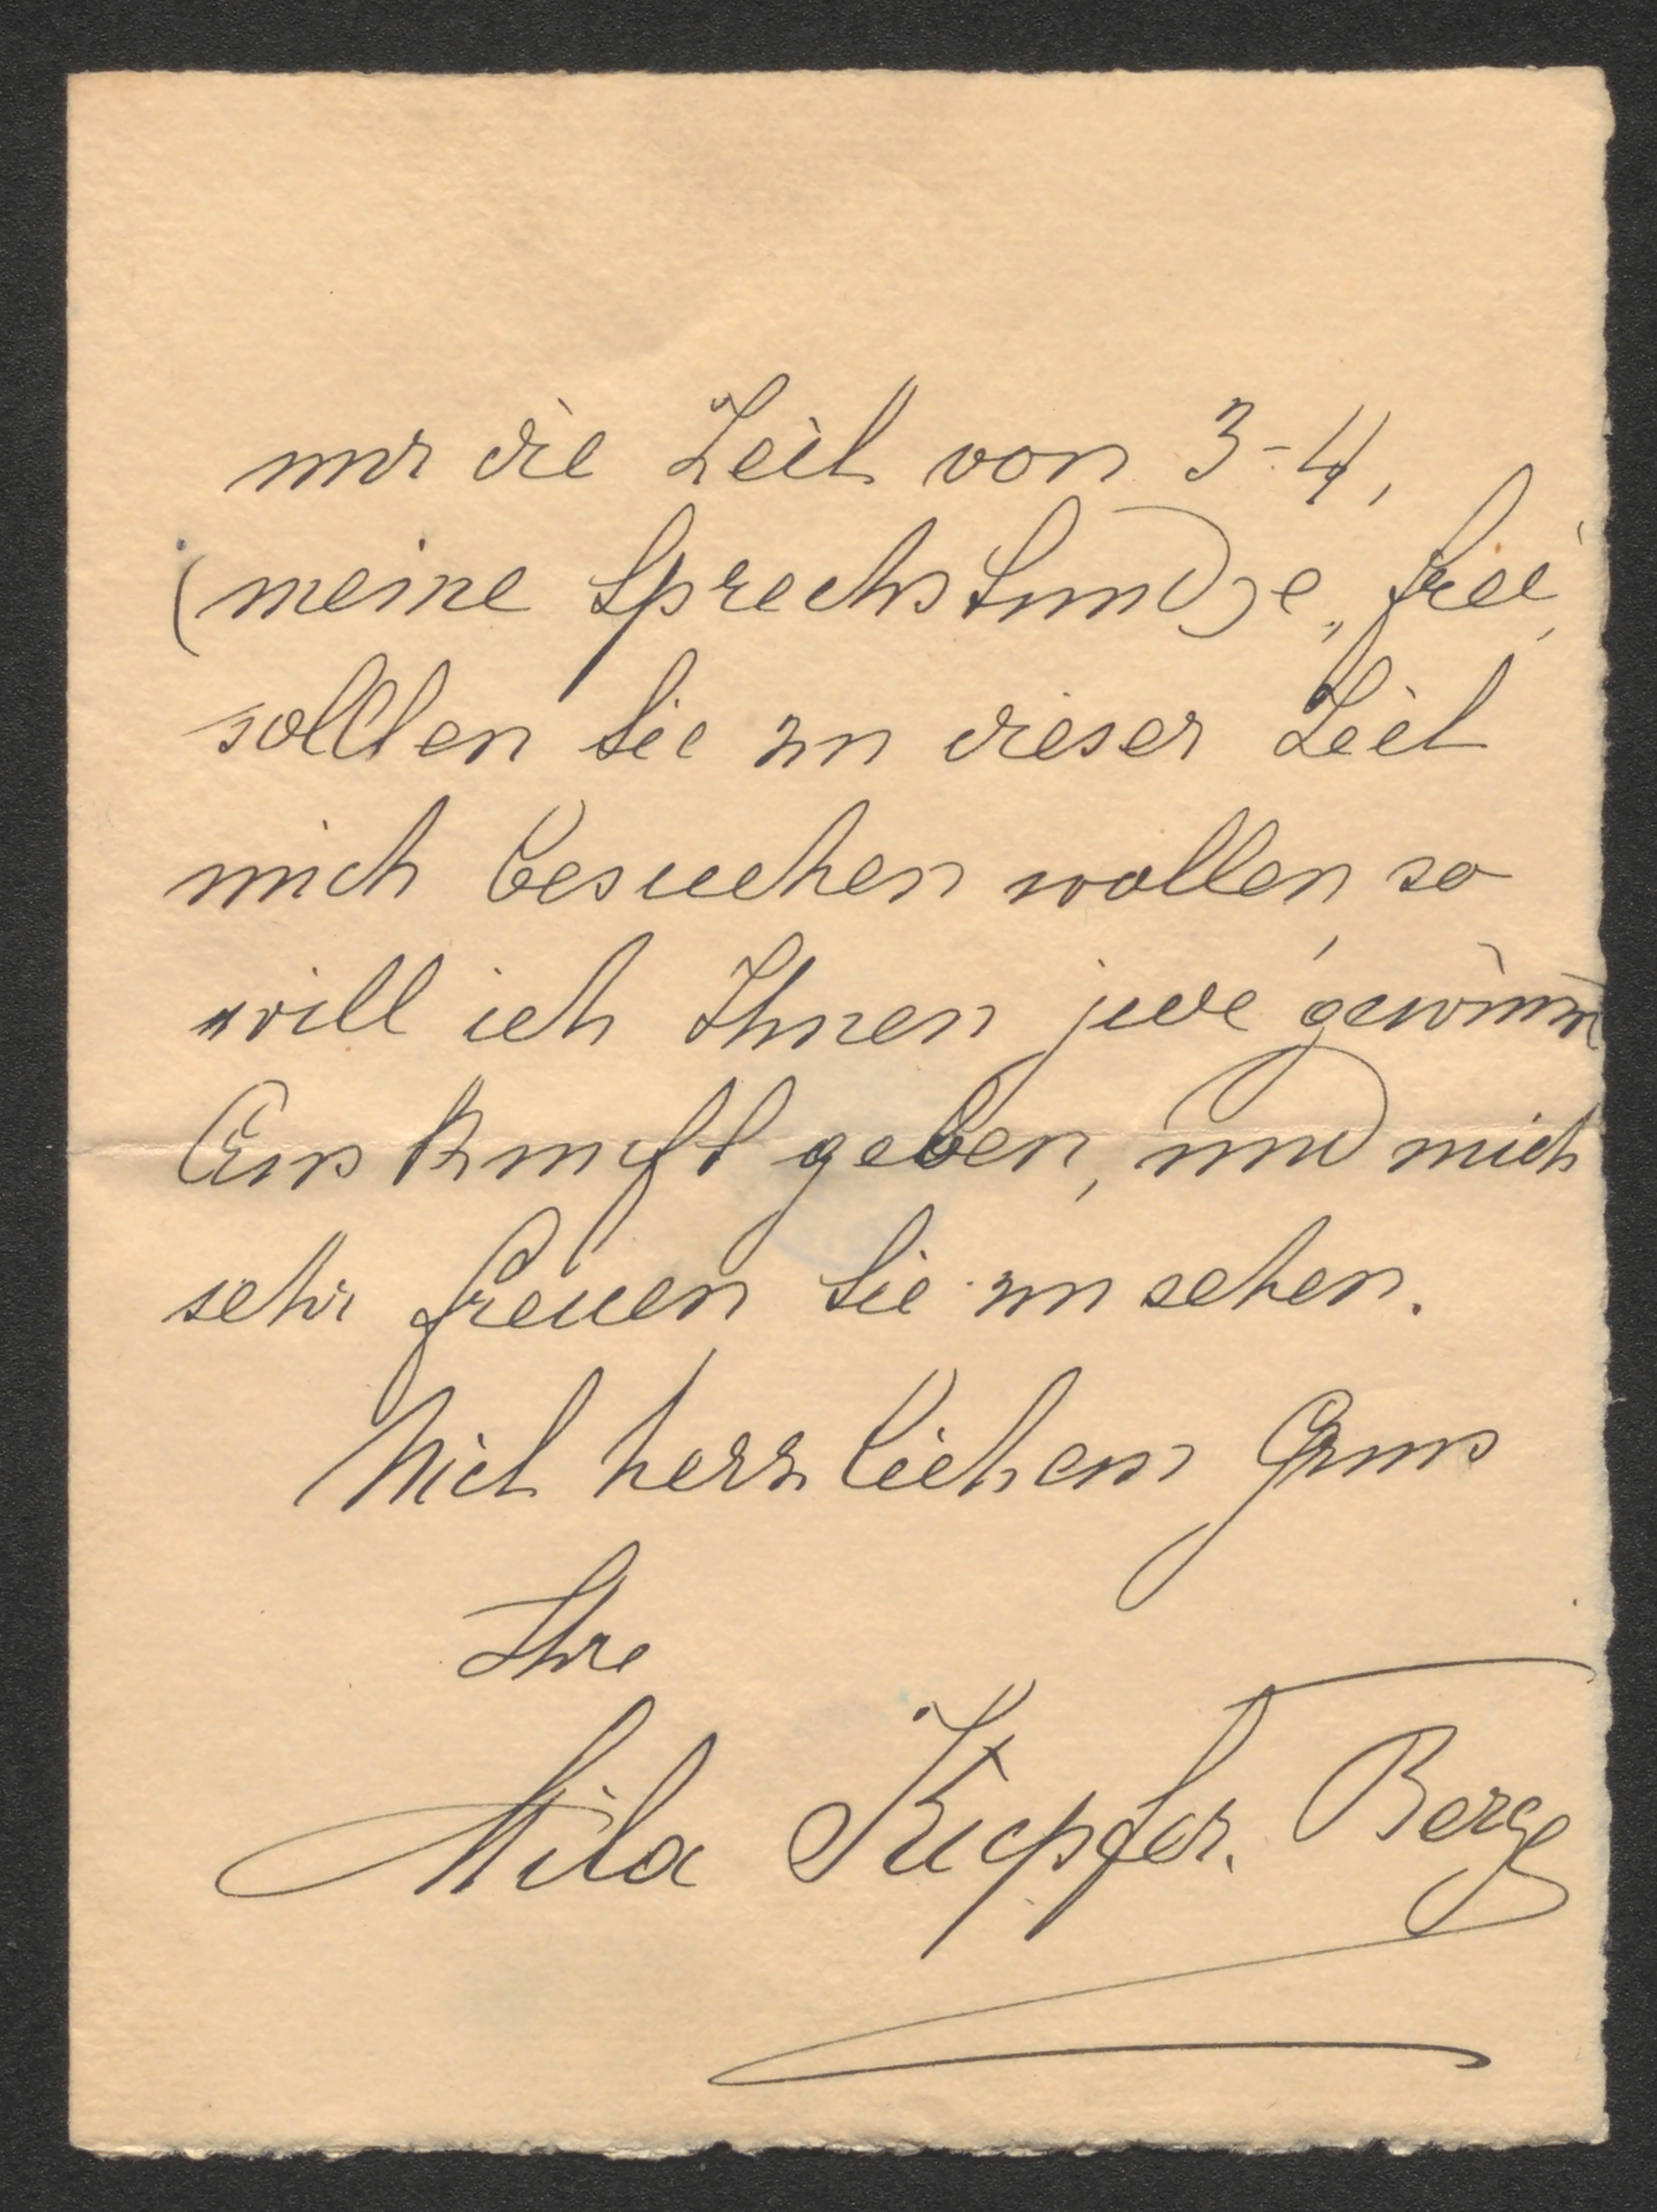 nur die Zeit von 3-4,
(meine Sprechstunde, frei,
sollten Sie zu dieser Zeit
mich besuchen wollen, so
will ich Ihnen jede gewün
Auskunft geben, und mich
sehr freuen Sie zu sehen.
Mit herzlichem Gruss
Ihre
Mila Kupfer-Berge